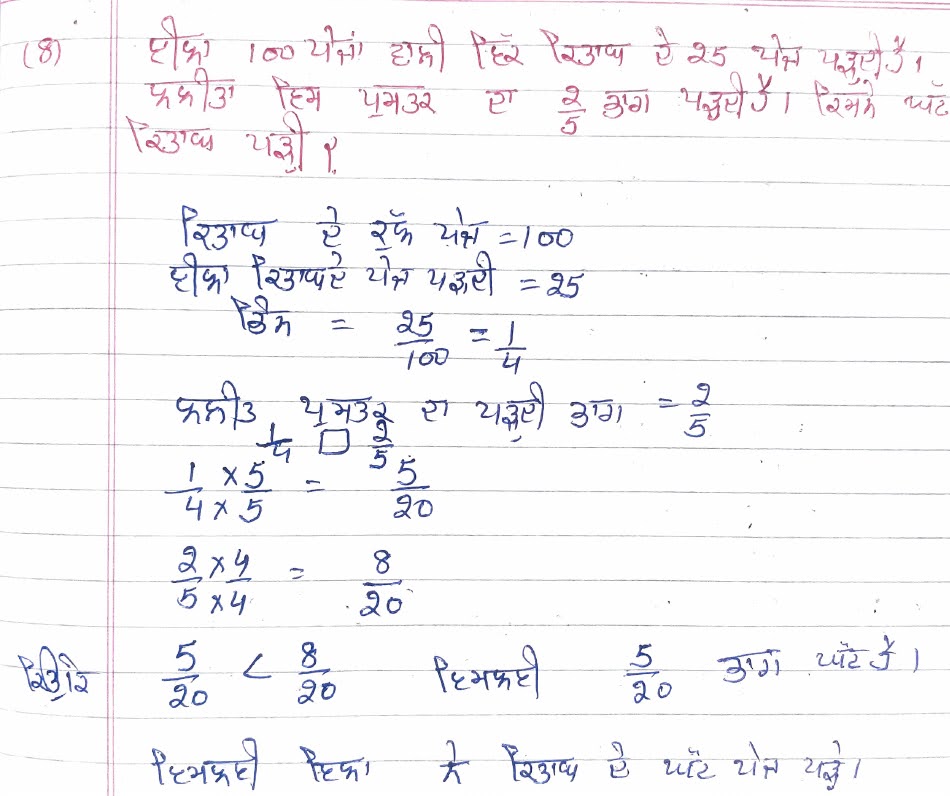 (8) ਈਲਾ 100 ਪੇਜਾਂ ਵਾਲੀ ਇੱਕ ਕਿਤਾਬ ਦੇ 25 ਪੇਜ ਪੜ੍ਹਦੀ ਹੈ।
ਲਲੀਤਾ ਇਸ ਪੁਸਤਕ ਦਾ 2/5 ਭਾਗ ਪੜ੍ਹਦੀ ਹੈ। ਕਿਸਨੇ ਘੱਟ
ਕਿਤਾਬ ਪੜ੍ਹੀ ?
ਕਿਤਾਬ ਦੇ ਕੁੱਲ ਪੇਜ = 100
ਈਲਾ ਕਿਤਾਬ ਦੇ ਪੇਜ ਪੜ੍ਹਦੀ = 25
ਭਿੰਨ = 25/100 = 1/4
ਲਲੀਤ ਪੁਸਤਕ ਦਾ ਪੜ੍ਹਦੀ ਭਾਗ = 2/5
1/4 □ 2/5
1/4 × 5/5 = 5/20
2/5 × 4/4 = 8/20
5/20 < 8/20 ਇਸਲਈ 5/20 ਭਾਗ ਘੱਟ ਹੈ।
ਇਸਲਈ ਇਲਾ ਨੇ ਕਿਤਾਬ ਦੇ ਘੱਟ ਪੇਜ ਪੜ੍ਹੇ।